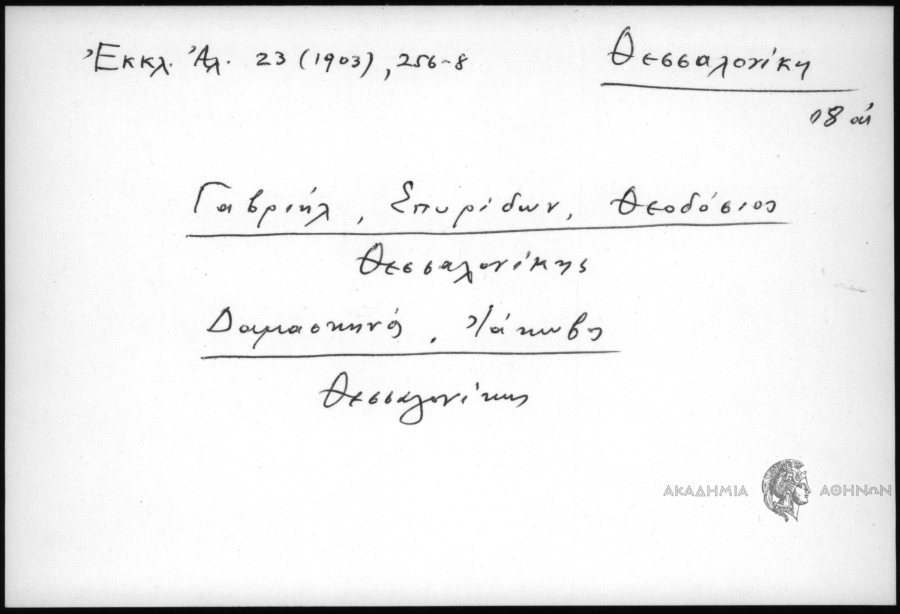 Ἐκκλ. Ἀλ. 23 (1903), 256-8
Θεσσαλονίκη
18 αἰ
Γαβριήλ, Σπυρίδων, Θεοδόσιος
Θεσσαλονίκης
Δαμασκηνός, Ἰάκωβος
Θεσσαλονίκης
ΑΚΑΔΗΜΙΑ ΑΘΗΝΩΝ